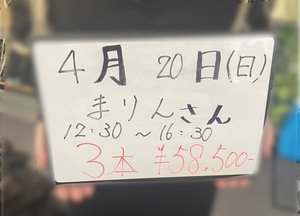 4月 20日(日)
まりんさん
12:30 ~ 16:30
3本 ¥58,500-